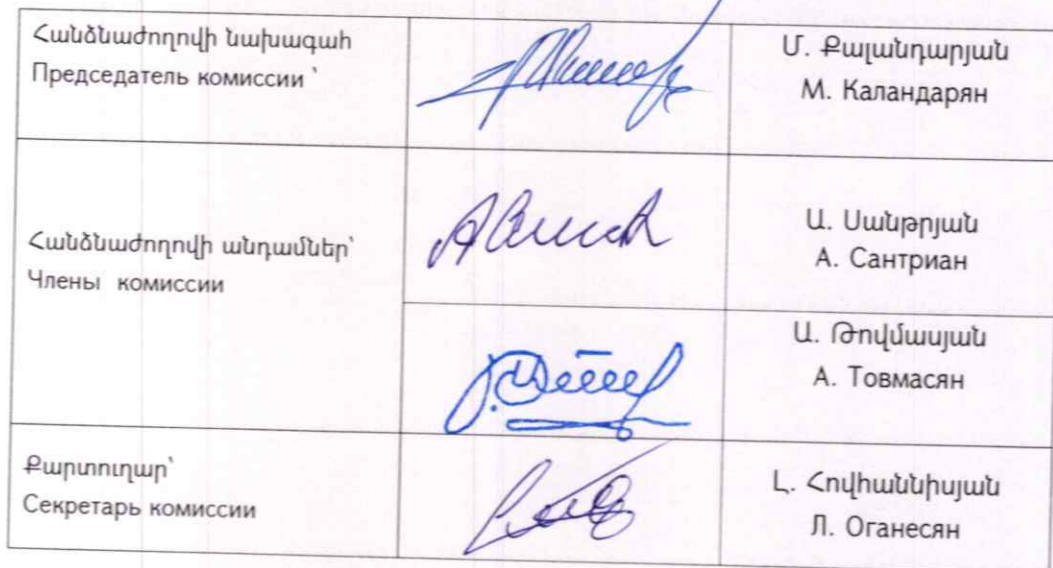 Հանձնաժողովի նախագահ
Председатель комиссии ՝
Մ. Քալանդարյան
М. Каландарян
Հանձնաժողովի անդամներ՝
Члены комиссии
Ա. Սանթրյան
А. Сантриан
Ա. Թովմասյան
А. Товмасян
Քարտուղար՝
Секретарь комиссии
Լ. Հովհաննիսյան
Л. Оганесян